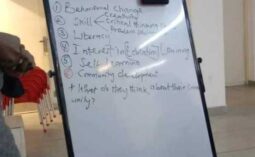 ① Behavioral change
② Skill creativity
critical thinking
problem solving
③ Literacy
④ Interest in education / learning
⑤ Self learning
⑥ Community development
* What do they think about their community?